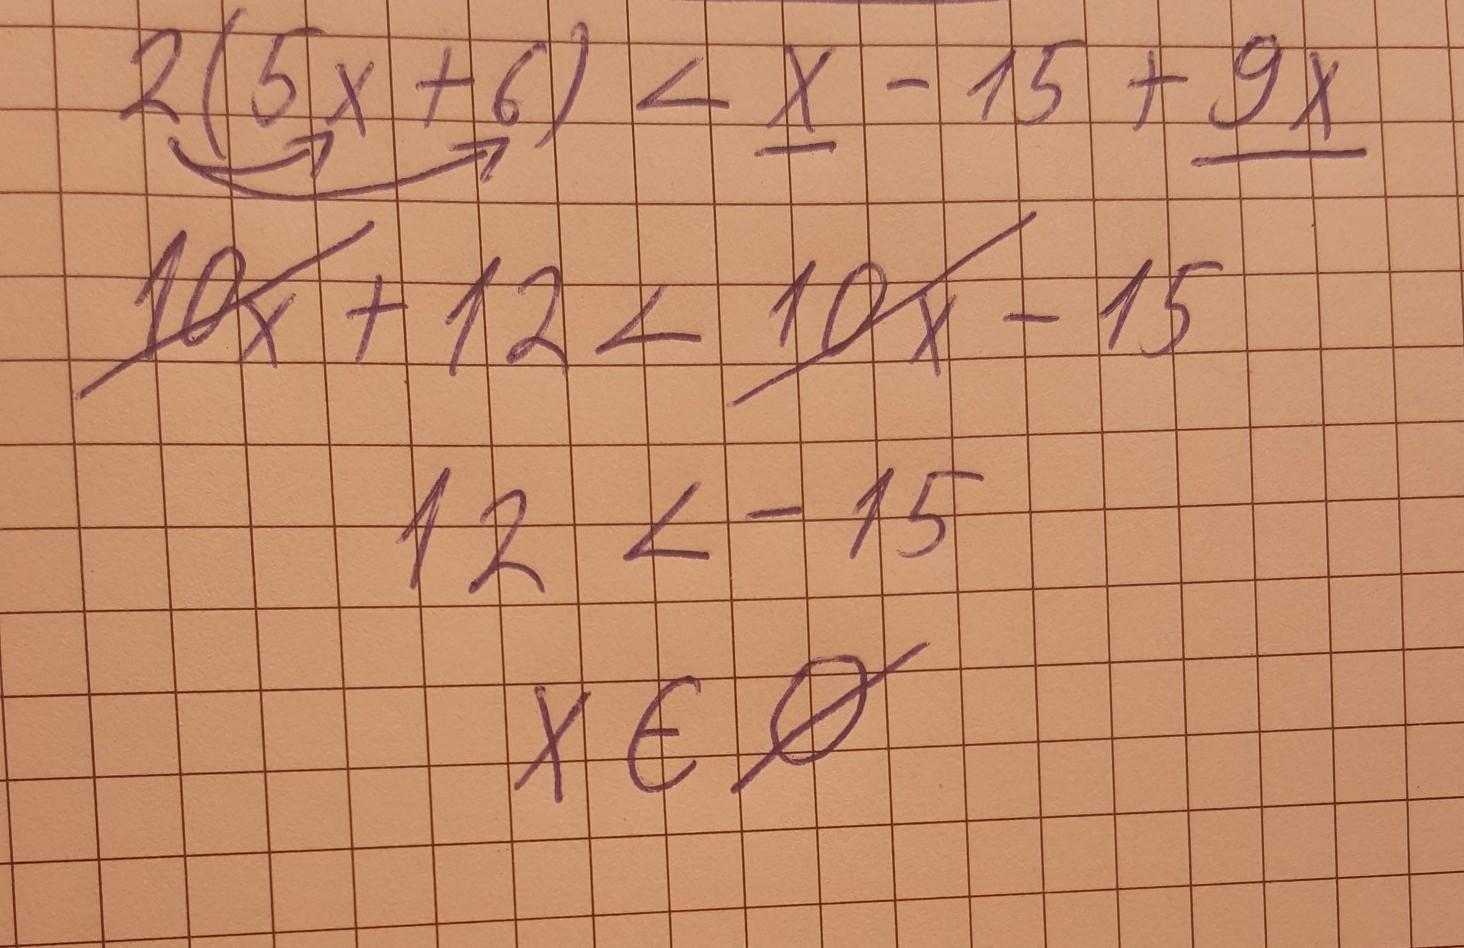 2(5x + 6) < x - 15 + 9x
10x + 12 < 10x - 15
12 < - 15
x ∈ ∅